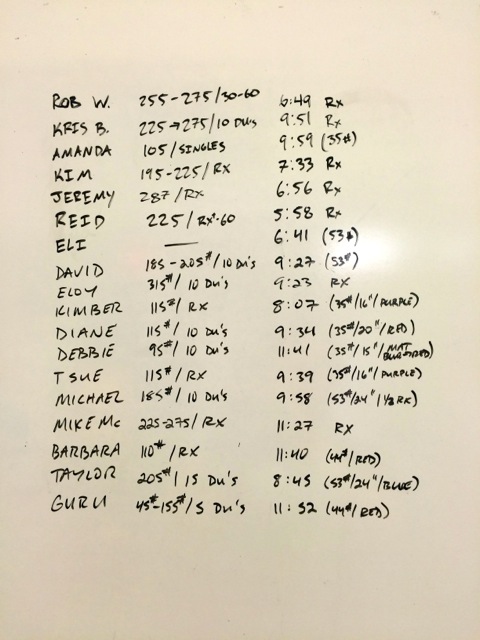 ROB W. 255-275/30-60 6:49 Rx
KRIS B. 225→275/10 DU's 9:51 Rx
AMANDA 105/SINGLES 9:59 (35#)
KIM 195-225/RX 7:33 Rx
JEREMY 287/RX 6:56 Rx
REID 225/RX-60 5:58 Rx
ELI — 6:41 (53#)
DAVID 185-205#/10 DU's 9:27 (53#)
ELOY 315#/10 DU's 9:23 RX
KIMBER 115#/RX 8:07 (35#/16"/PURPLE)
DIANE 115#/10 DU's 9:34 (35#/20"/RED)
DEBBIE 95#/10 DU's 11:41 (35#/15"/MAT RED)
T SUE 115#/RX 9:39 (35#/16"/PURPLE)
MICHAEL 185#/10 DU's 9:58 (53#/24"/
MIKE MC 225-275/RX 11:27 RX
BARBARA 110#/RX 11:40 (44#/RED)
TAYLOR 205#/15 DU's 8:45 (53#/24"/BLUE)
GURU 45#-155#/5 DU's 11:32 (44#/RED)